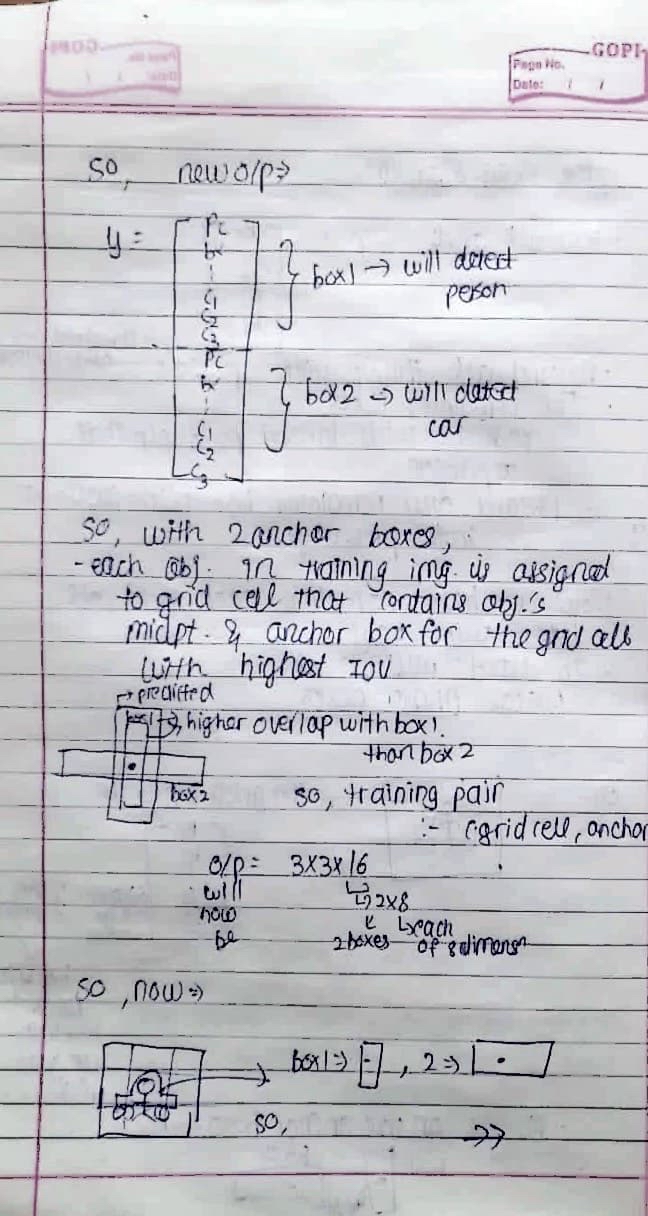 GOPI
Page No.
Date: / /
so, new o/p ⇒
y =
Pc
bx
C1
C2
C3
Pc
bx
C1
C2
C3
box1 → will detect
person
box2 → will detect
car
so, with 2 anchor boxes,
- each obj. in training img. is assigned
to grid cell that contains obj.'s
midpt. & anchor box for the grid cell
with highest IOU
→ predicted
box1 → higher overlap with box1.
than box 2
box2
so, training pair
:- (grid cell, anchor
o/p = 3x3x16
will
now
be
↳ 2x8
2 boxes
↳ each
of 8 dimensn
so, now ⇒
box1 ⇒ , 2 ⇒
so,